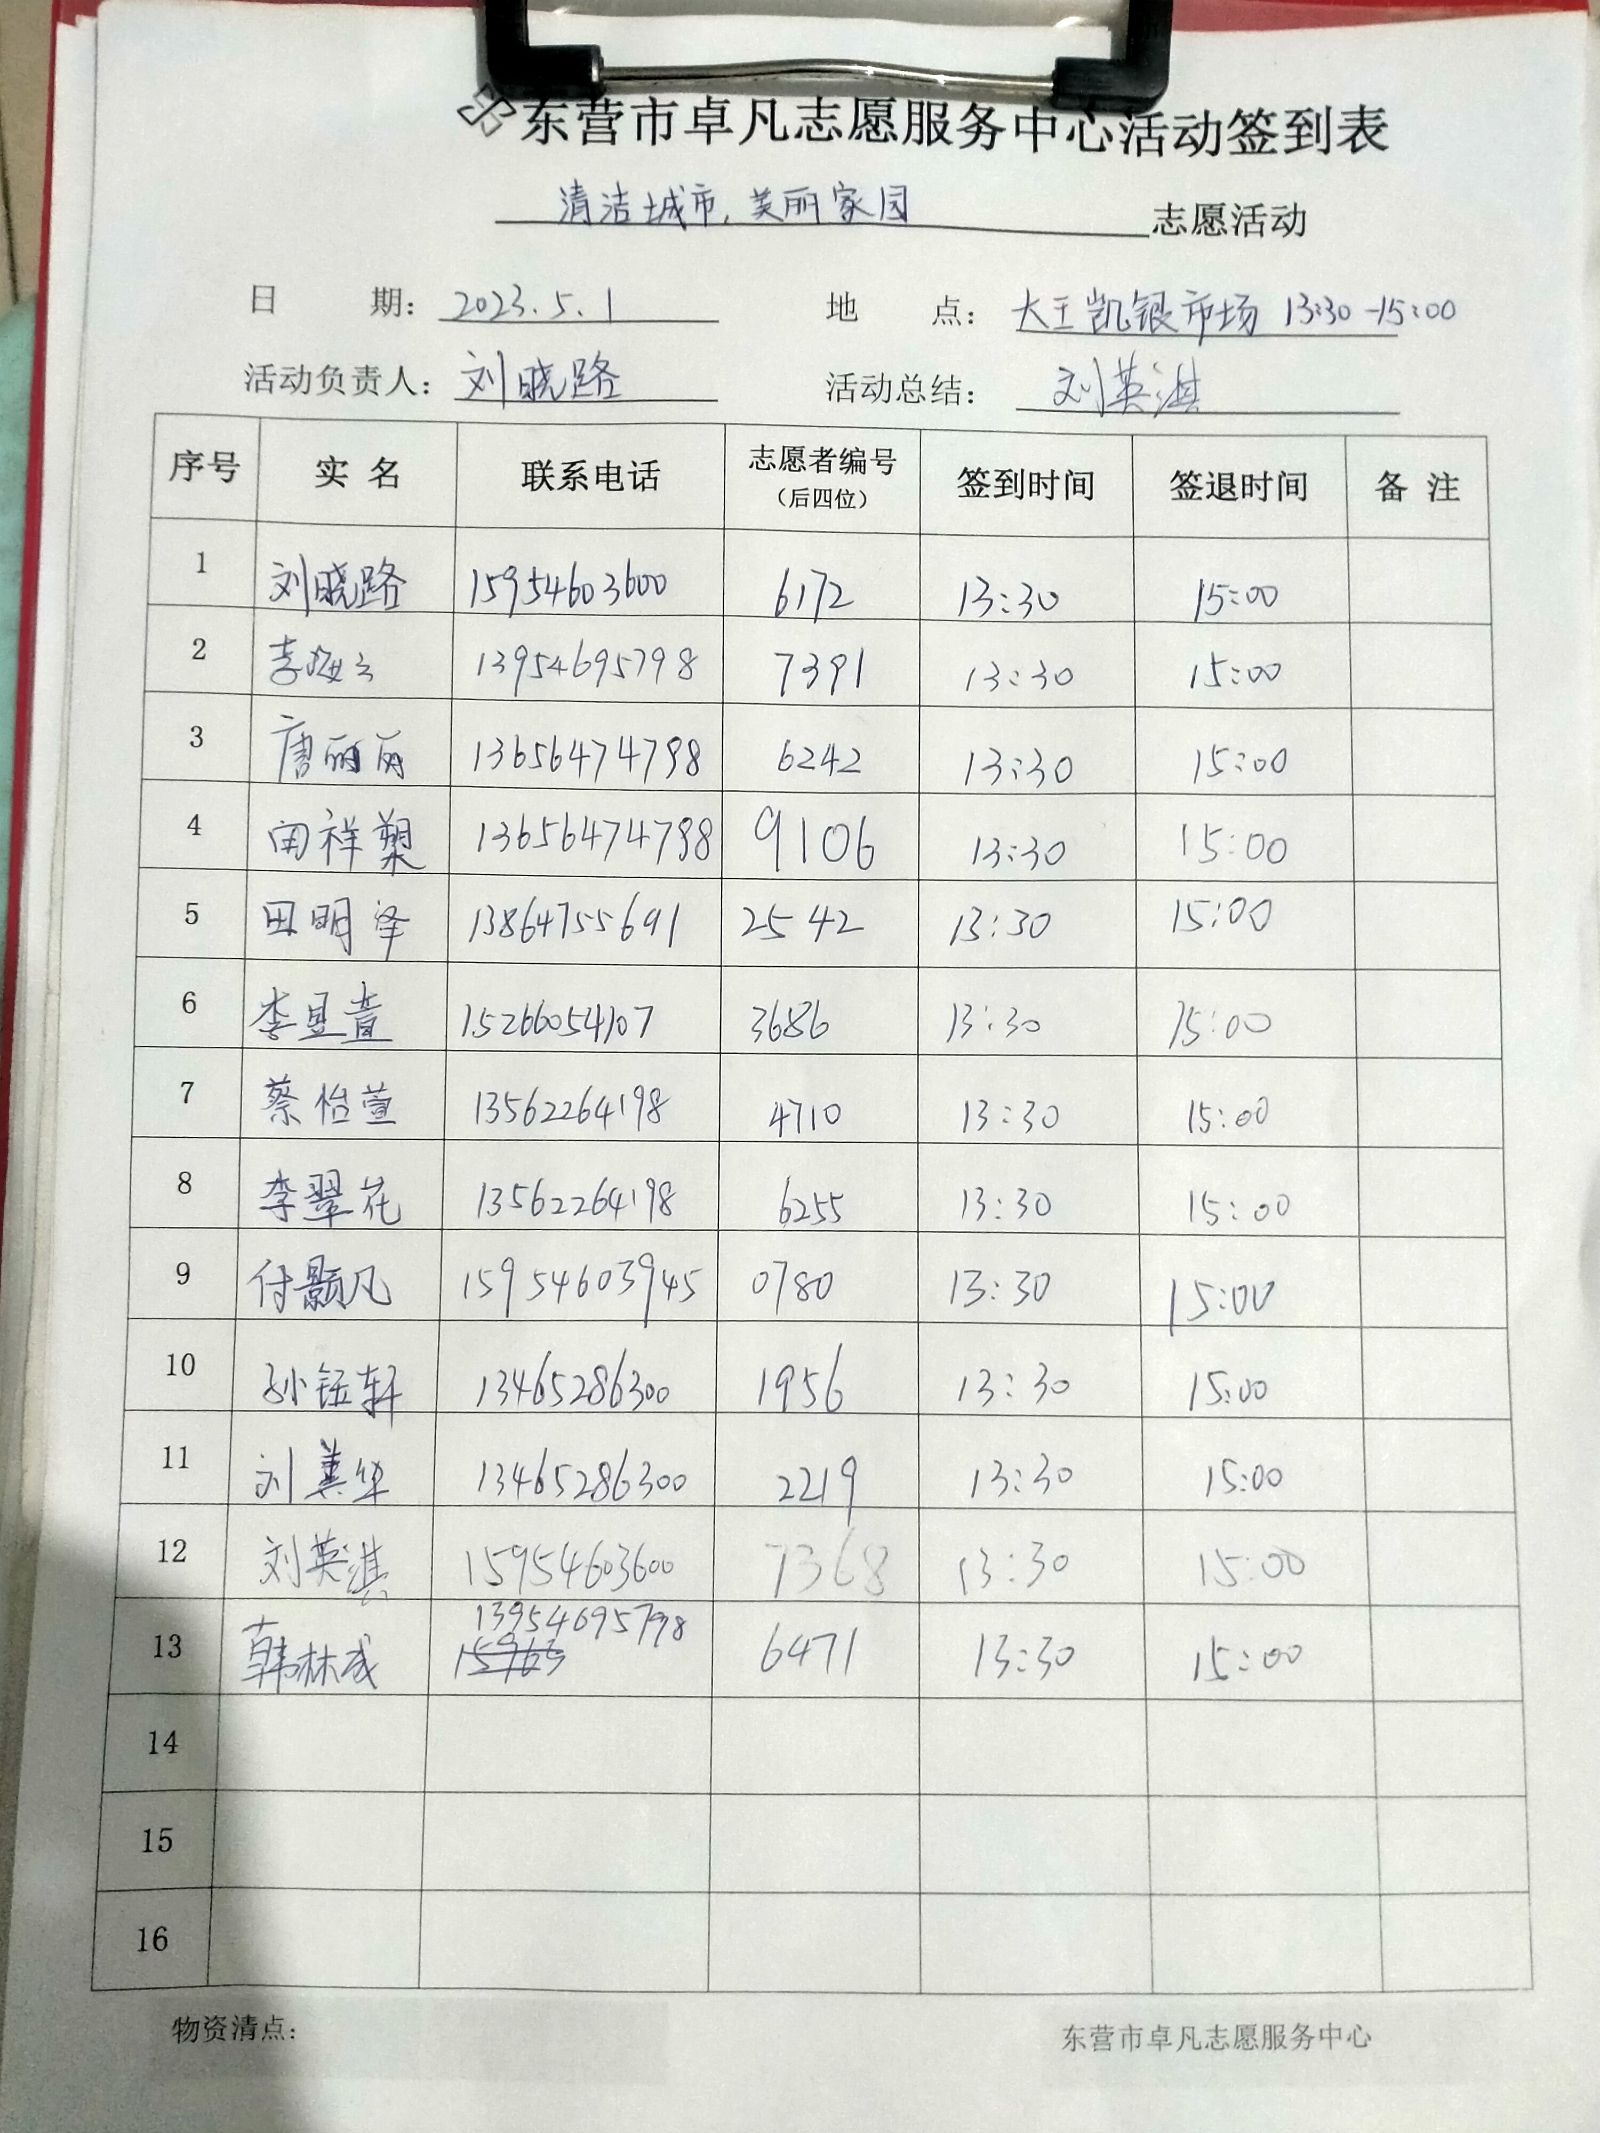 东营市卓凡志愿服务中心活动签到表
清洁城市,美丽家园 志愿活动
日 期: 2023.5.1 地 点: 大王凯银市场 13:30-15:00
活动负责人: 刘晓路 活动总结: 刘英淇
序号 实 名 联系电话 志愿者编号(后四位) 签到时间 签退时间 备 注
1 刘晓路 15954603600 6172 13:30 15:00
2 李 13954695798 7391 13:30 15:00
3 唐丽丽 13656474798 6242 13:30 15:00
4 田祥塑 13656474798 9106 13:30 15:00
5 田明泽 13864755691 2542 13:30 15:00
6 李昱萱 15266054107 3686 13:30 15:00
7 蔡怡萱 13562264198 4710 13:30 15:00
8 李翠花 13562264198 6255 13:30 15:00
9 付颢凡 15954603945 0780 13:30 15:00
10 孙钰轩 13465286300 1956 13:30 15:00
11 刘美华 13465286300 2219 13:30 15:00
12 刘英淇 15954603600 7368 13:30 15:00
13 韩林成 13954695798 6471 13:30 15:00
14
15
16
物资清点: 东营市卓凡志愿服务中心